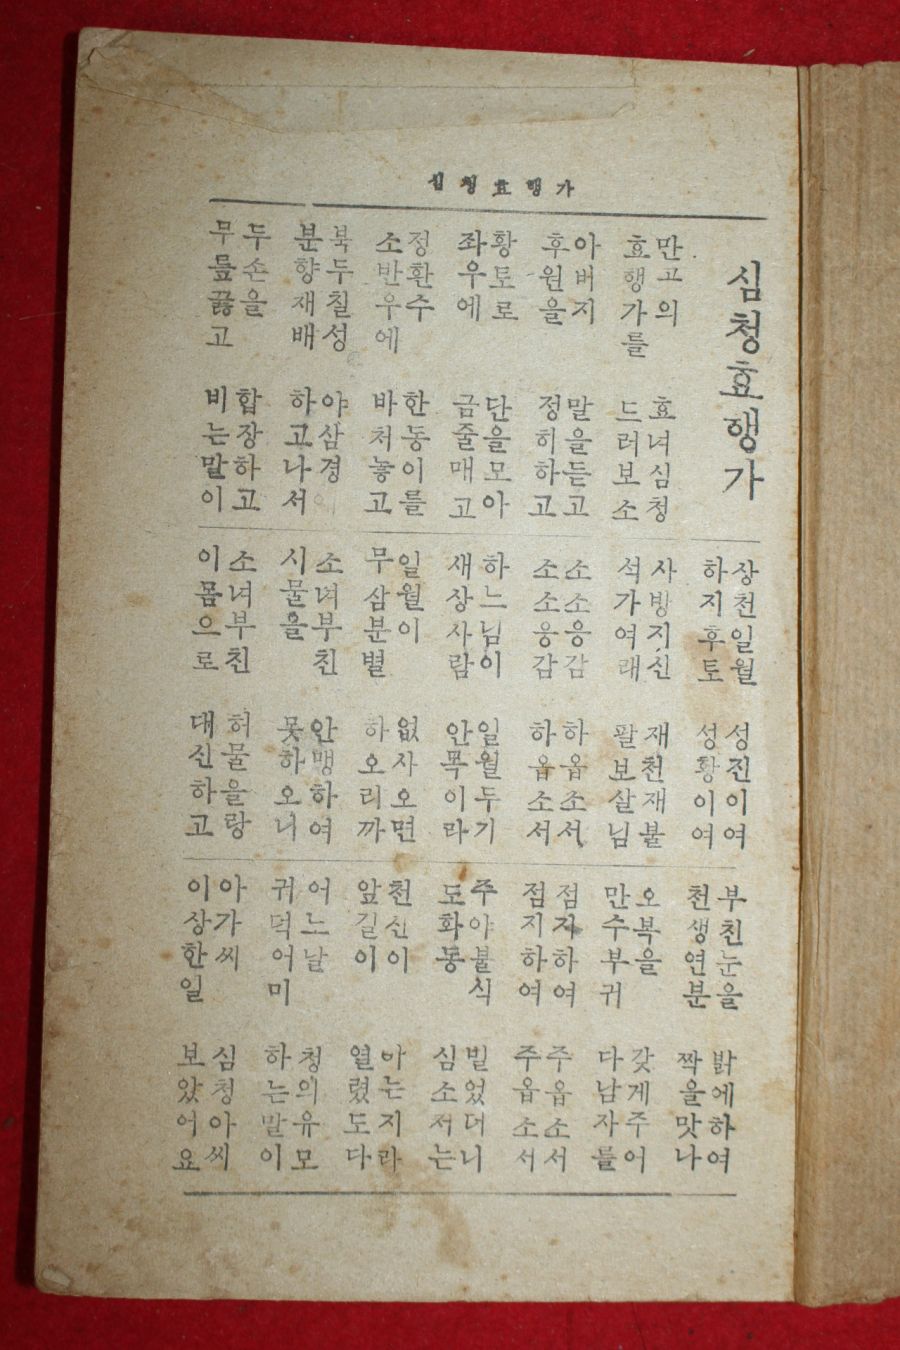 심청효행가
심청효행가
만고의 효녀심청
효행가를 드러보소
아버지 말을듣고
후원을 정히하고
황토로 단을모아
좌우에 금줄매고
정환수 한동이를
소반우에 바처놓고
북두칠성 야삼경에
분향재배 하고나서
두손을 합장하고
무릎끓고 비는말이
상천일월 성진이여
하지후토 성황이여
사방지신 재천재불
석가여래 팔보살님
소소응감 하옵소서
소소응감 하옵소서
하느님이 일월두기
새상사람 안목이라
일월이 없사오면
무삼분별 하오리까
소녀부친 안맹하여
시물을 못하오니
소녀부친 허물을랑
이몸으로 대신하고
부친눈을 밝에하여
천생연분 짝을맛나
오복을 갖게주어
만수부귀 다남자를
점지하여 주옵소서
점지하여 주옵소서
주야불식 빌었더니
도화동 심소저는
천신이 아는지라
앞길이 열렸도다
어느날 청의유모
귀먹어미 하는말이
아가씨 심청아씨
이상한일 보았어요